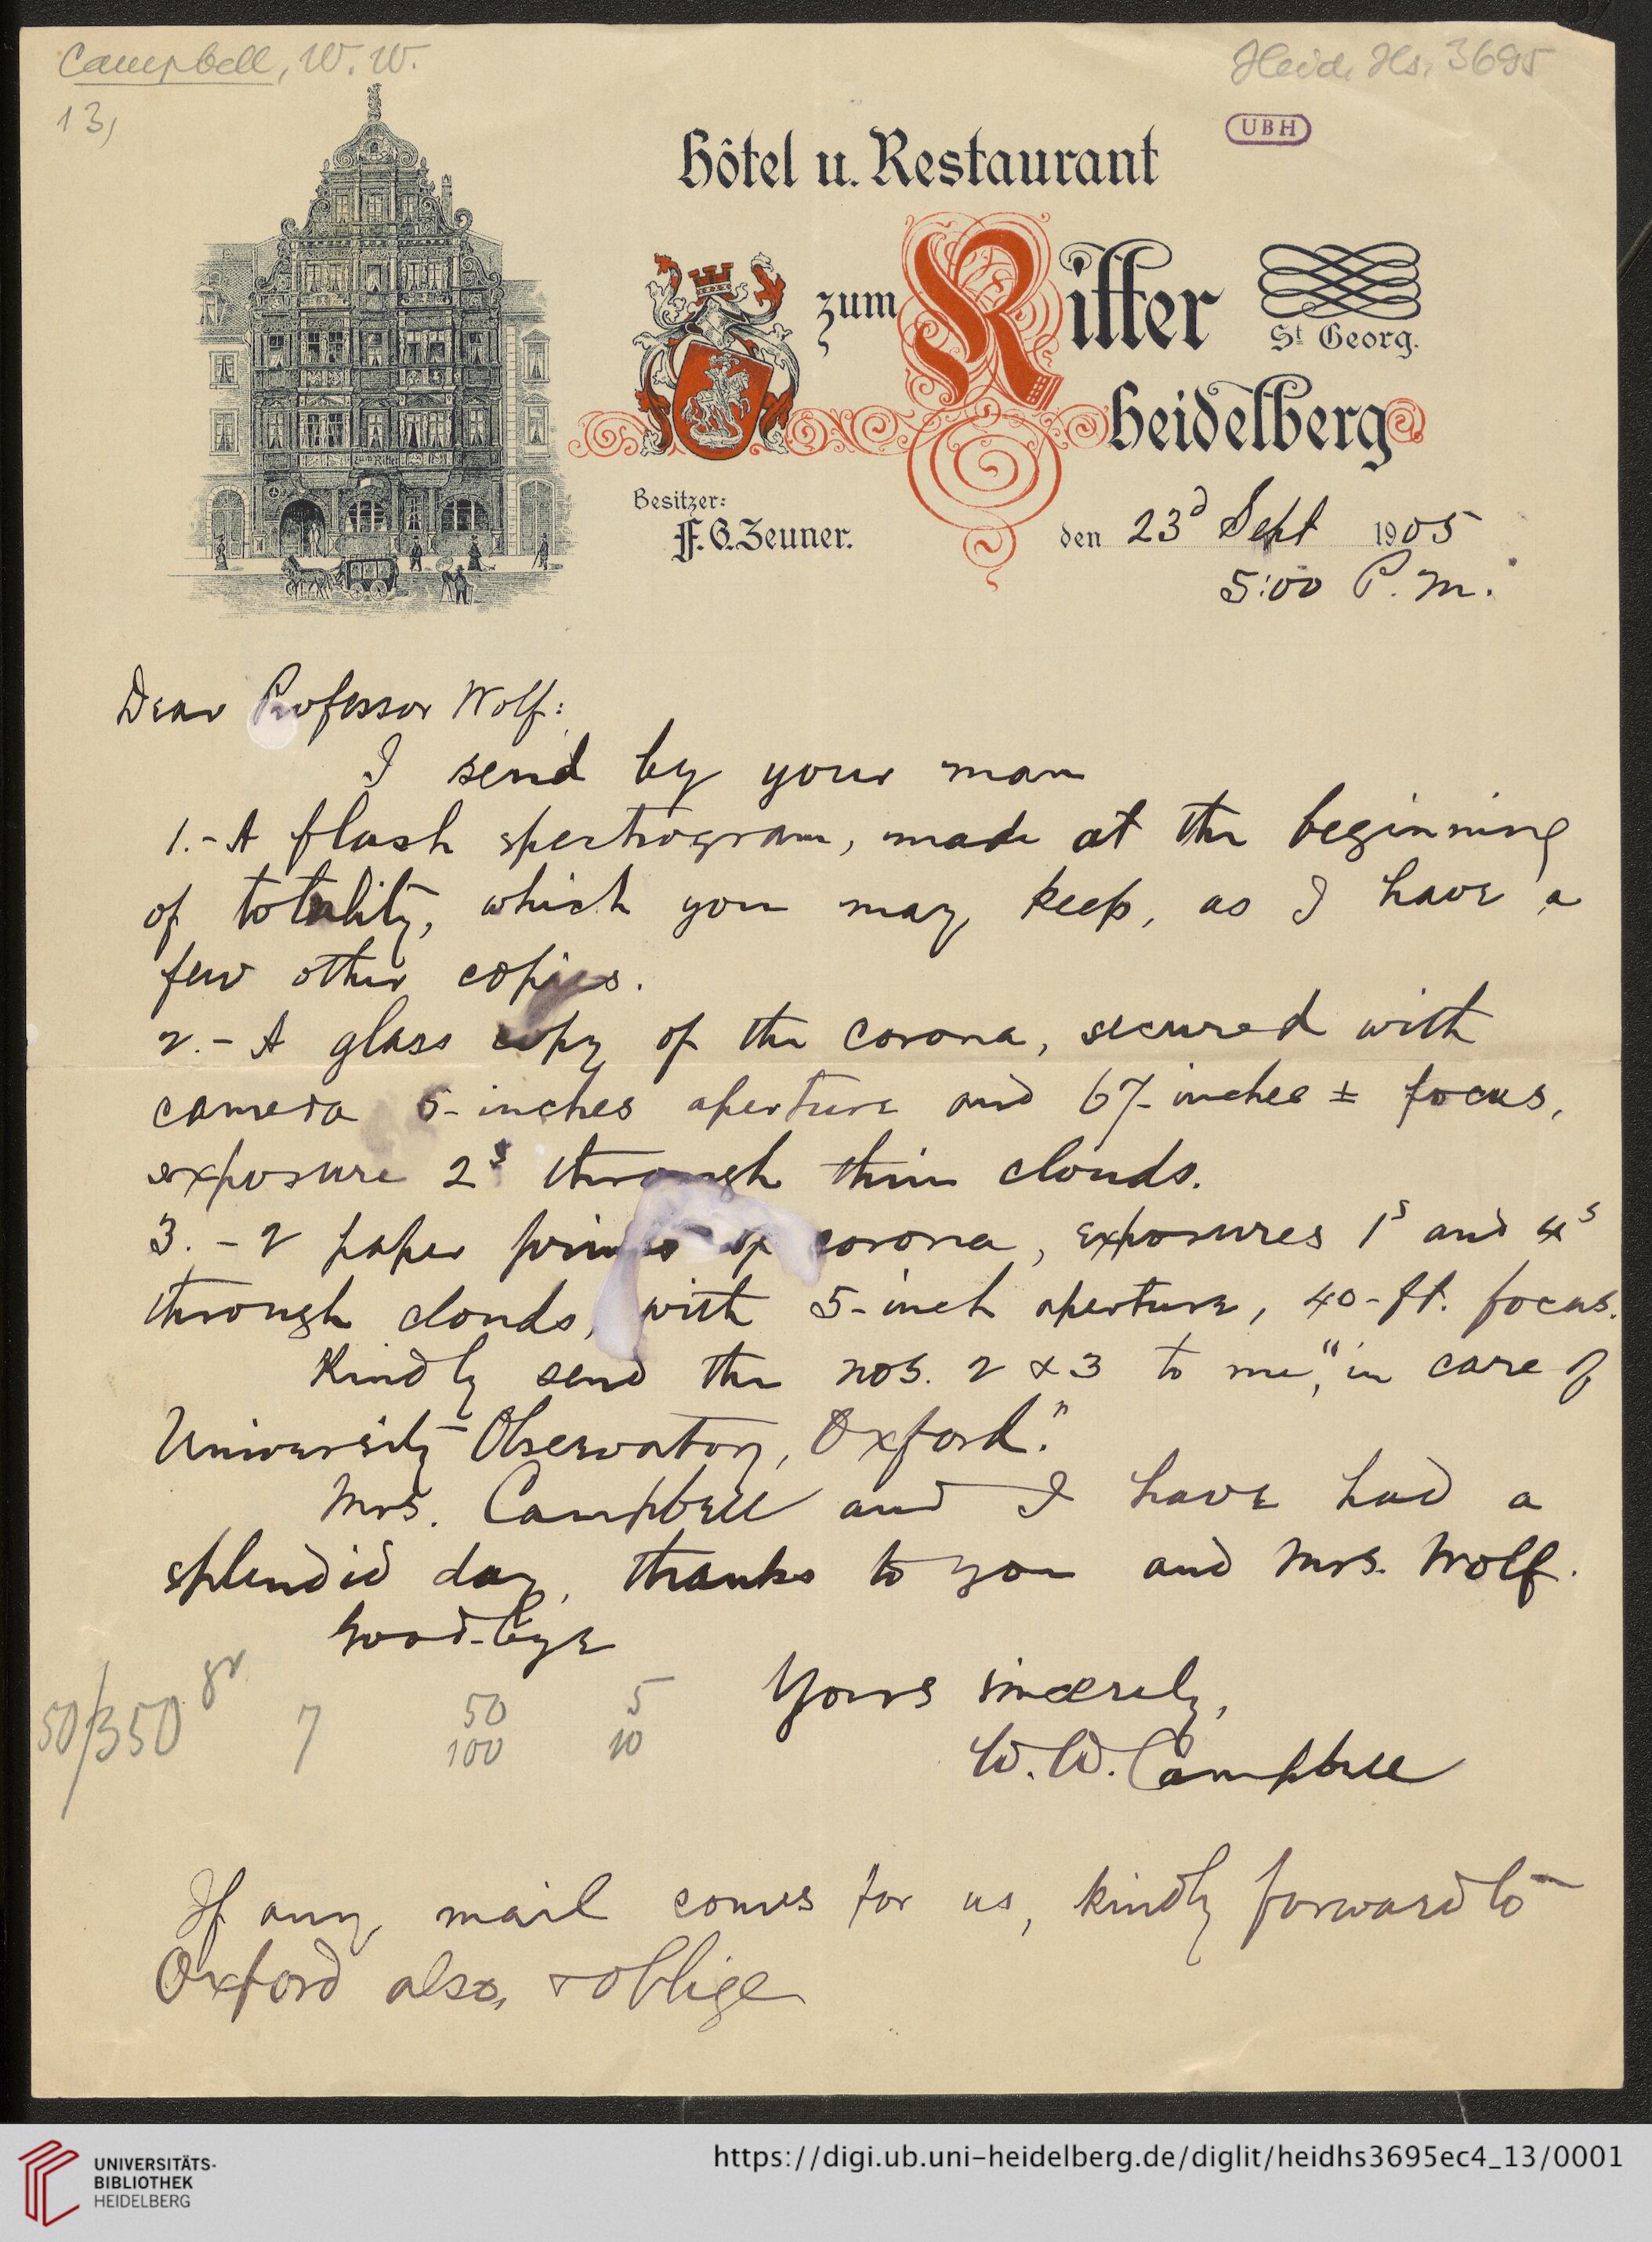 Campbell, W. W.
Heid. Hs. 3695
13,
UBH
Hôtel u. Restaurant
zum Ritter
St Georg.
Heidelberg
Besitzer:
F. G. Zeuner.
den 23d Sept 1905
5:00 P.M.
Dear Professor Wolf:
I send by your man
1.- A flash spectrogram, made at the beginning
of totality, which you may keep, as I have a
few other copies.
2.- A glass copy of the corona, secured with
camera 5-inches aperture and 67-inches ± focus,
exposure 2s through thin clouds.
3.- 2 paper prints of corona, exposures 1s and 4s
through clouds, with 5-inch aperture, 40-ft. focus.
Kindly send the nos. 2 & 3 to me, "in care of
University Observatory, Oxford."
Mrs. Campbell and I have had a
splendid day, thanks to you and Mrs. Wolf.
Good-bye
Yours sincerely,
W. W. Campbell
50/350 gr 7 50 5
100 10
If any mail comes for us, kindly forward to
Oxford also, & oblige
UNIVERSITÄTS-
BIBLIOTHEK
HEIDELBERG
https://digi.ub.uni-heidelberg.de/diglit/heidhs3695ec4_13/0001